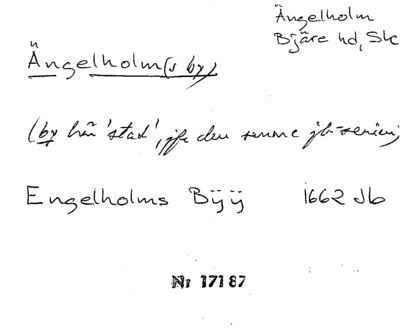 Ängelholm
Bjäre hd, Sk
Ängelholm(s by)
(by här 'stad', jfr den samme jb-serien)
Engelholms Bÿÿ 1662 Jb
Nr 17187